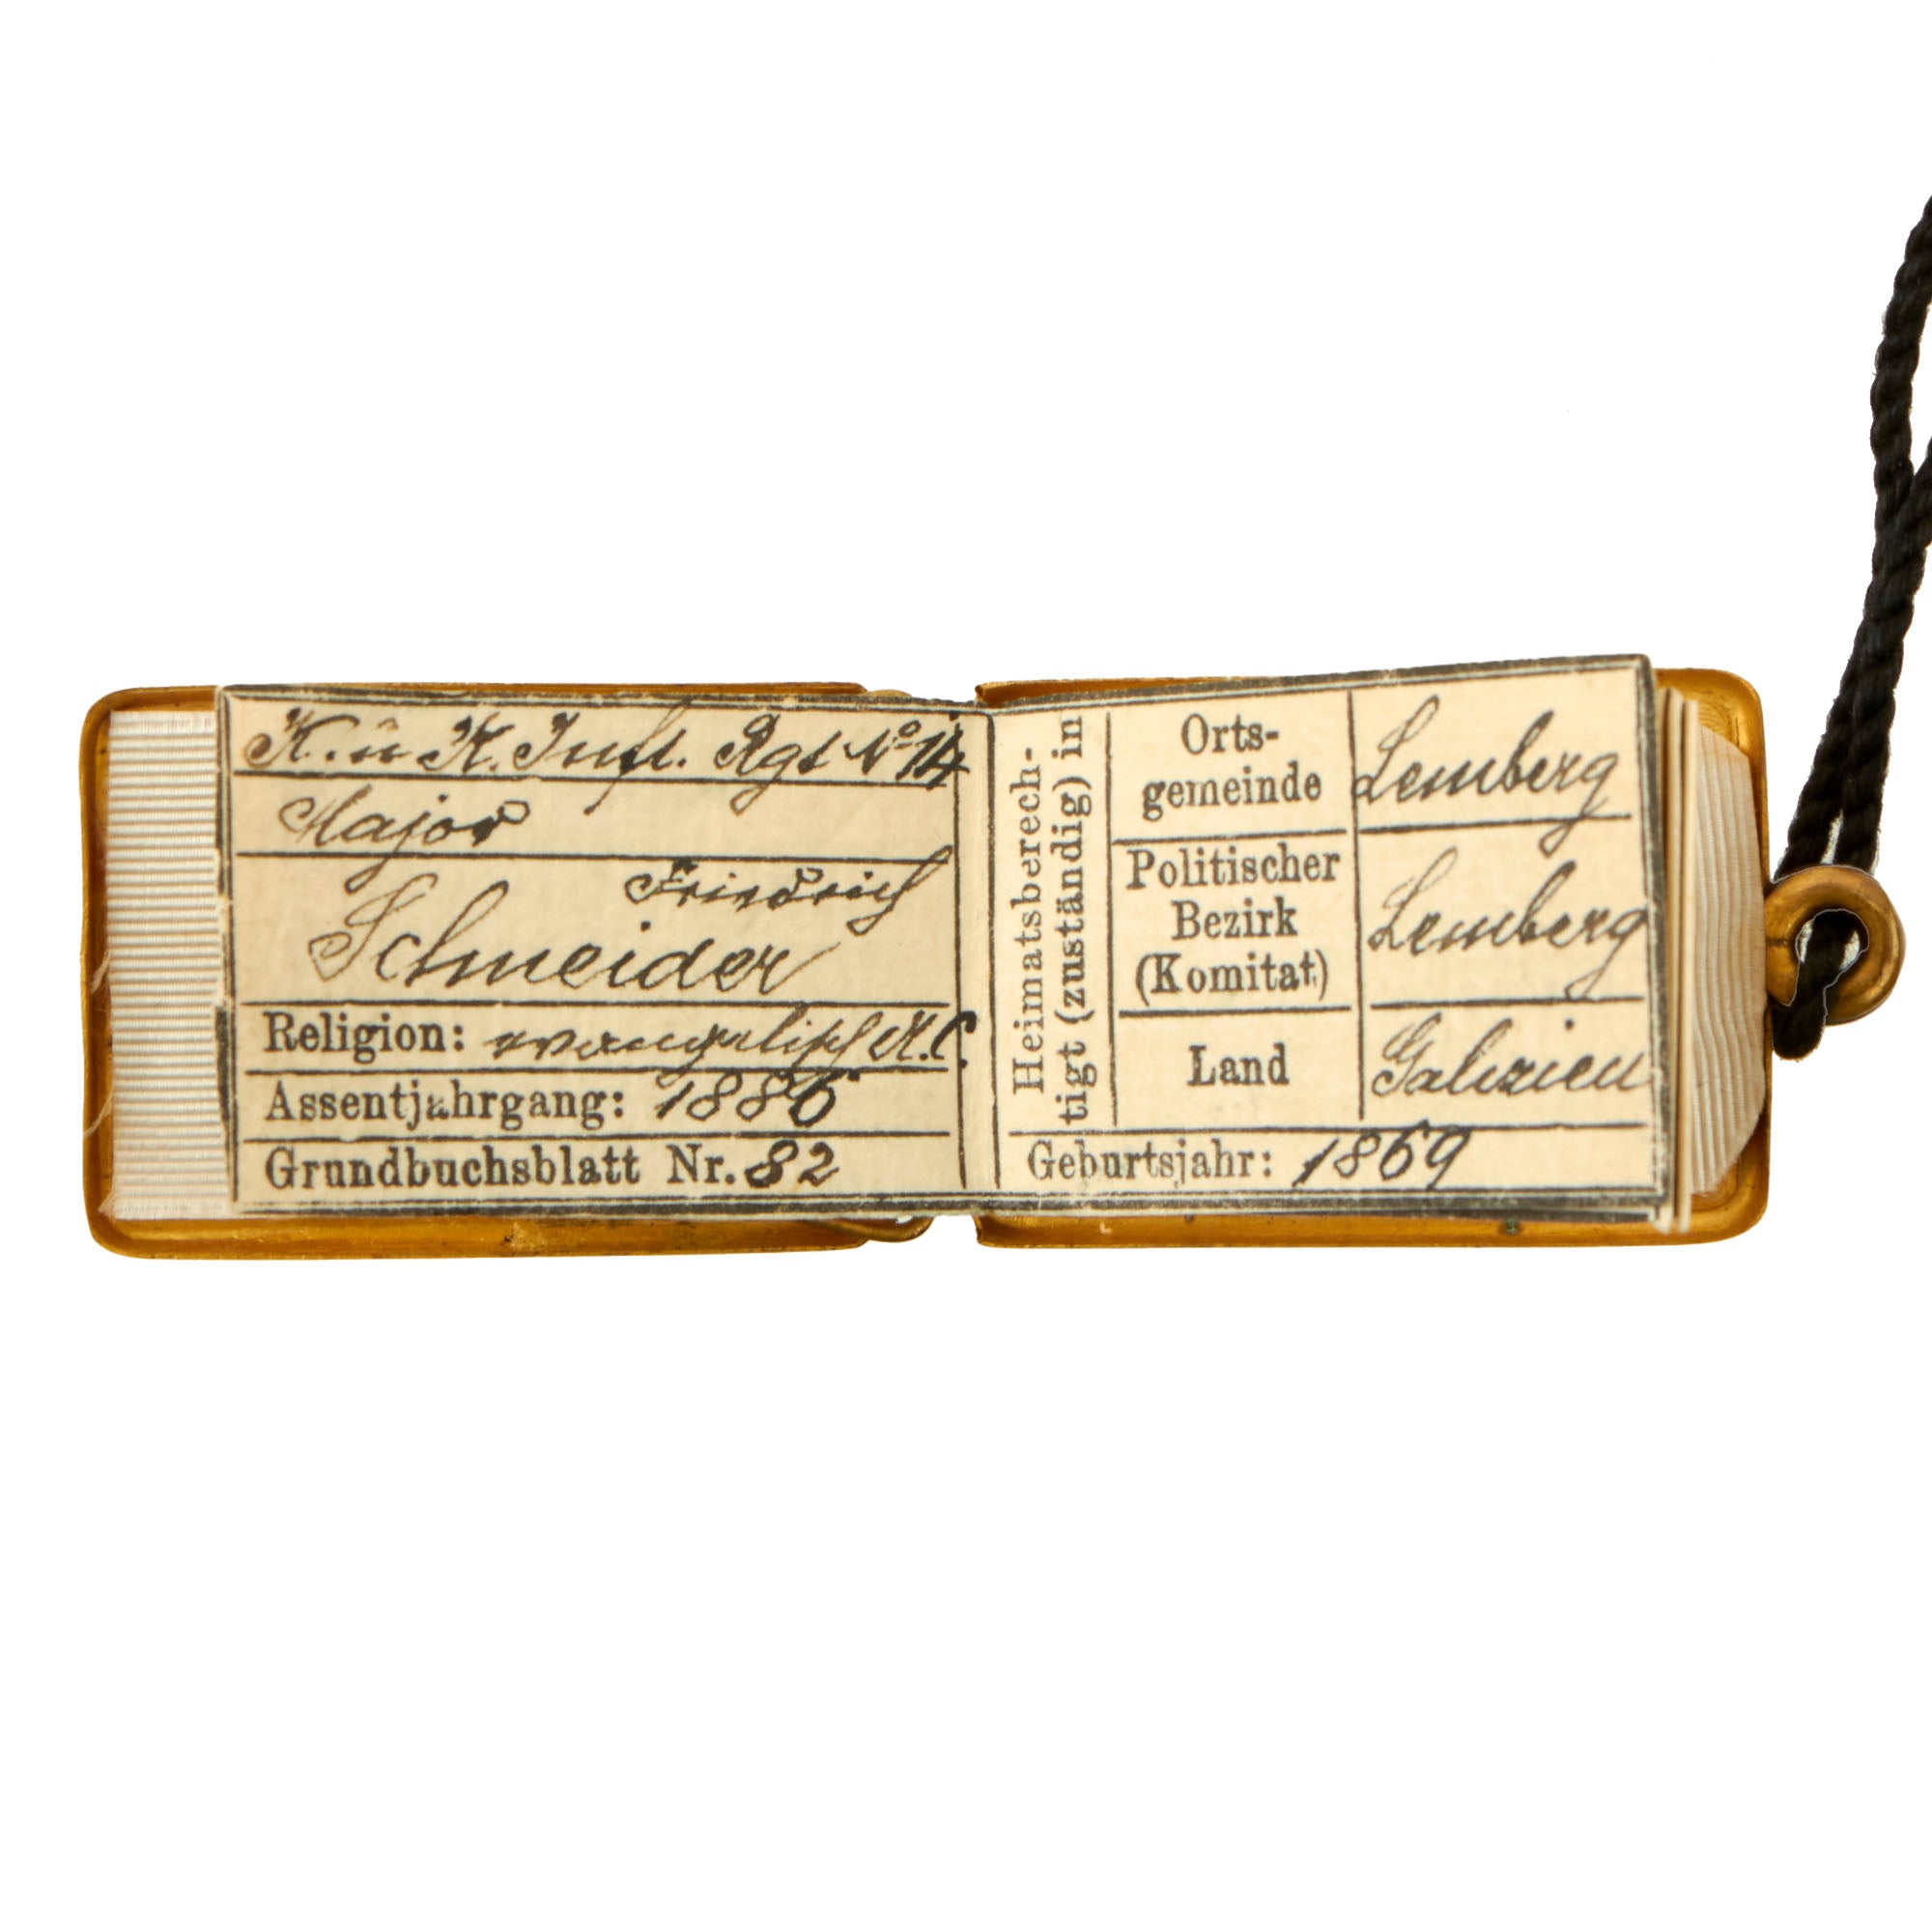 K. u. K. Inft. Rgt No 14
Major
Friedrich
Schneider
Religion: evangelisch A.C.
Assentjahrgang: 1886
Grundbuchsblatt Nr. 82
Heimatsberech-
tigt (zuständig) in
Orts-
gemeinde Lemberg
Politischer
Bezirk
(Komitat) Lemberg
Land Galizien
Geburtsjahr: 1869